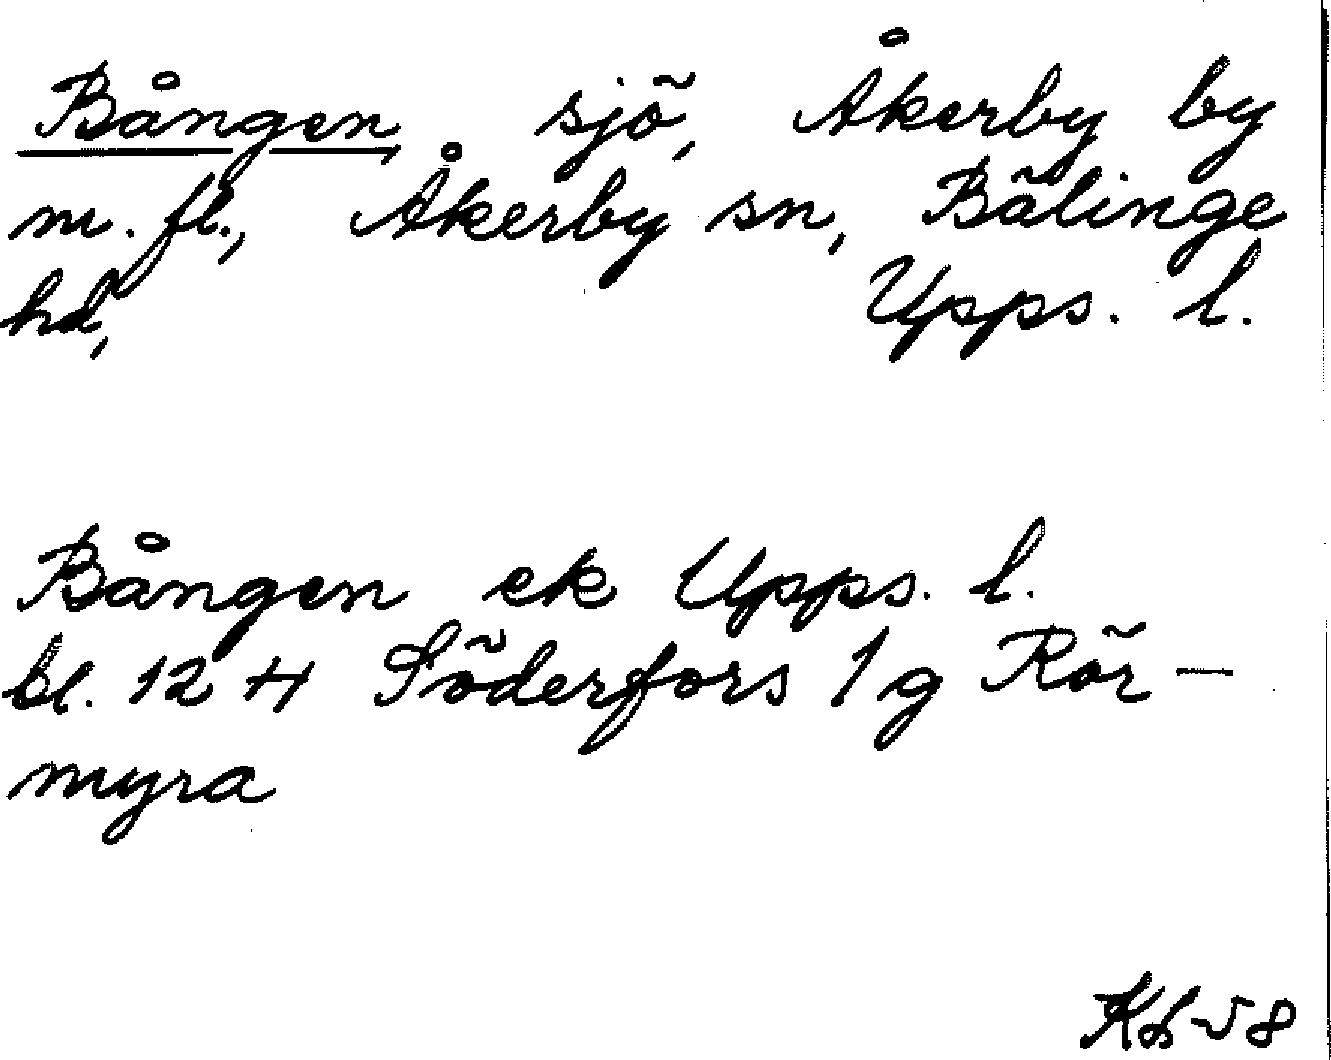 Bången, sjö, Åkerby by
m. fl., Åkerby sn, Bälinge
hd, Upps. l.
Bången ek Upps. l.
bl. 12 H Söderfors 1 g Rör-
myra